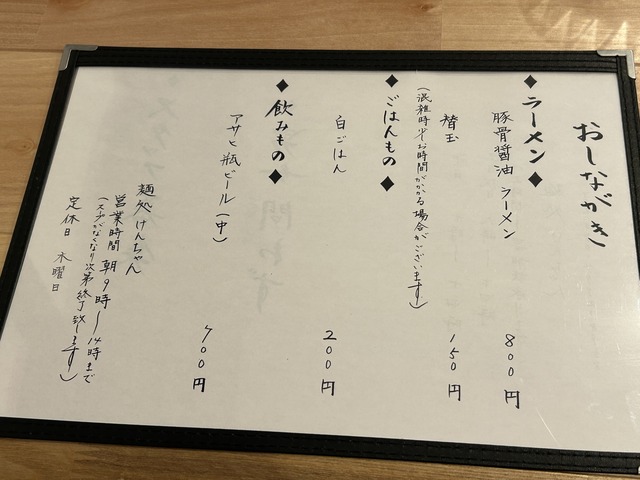 おしながき
◆ラーメン◆
豚骨醤油ラーメン 800円
替玉 150円
(混雑時少々お時間がかかる場合がございます)
◆ごはんもの◆
白ごはん 200円
◆飲みもの◆
アサヒ瓶ビール(中) 700円
麺処けんちゃん
営業時間 朝9時〜14時まで
(スープがなくなり次第終了致します)
定休日 木曜日